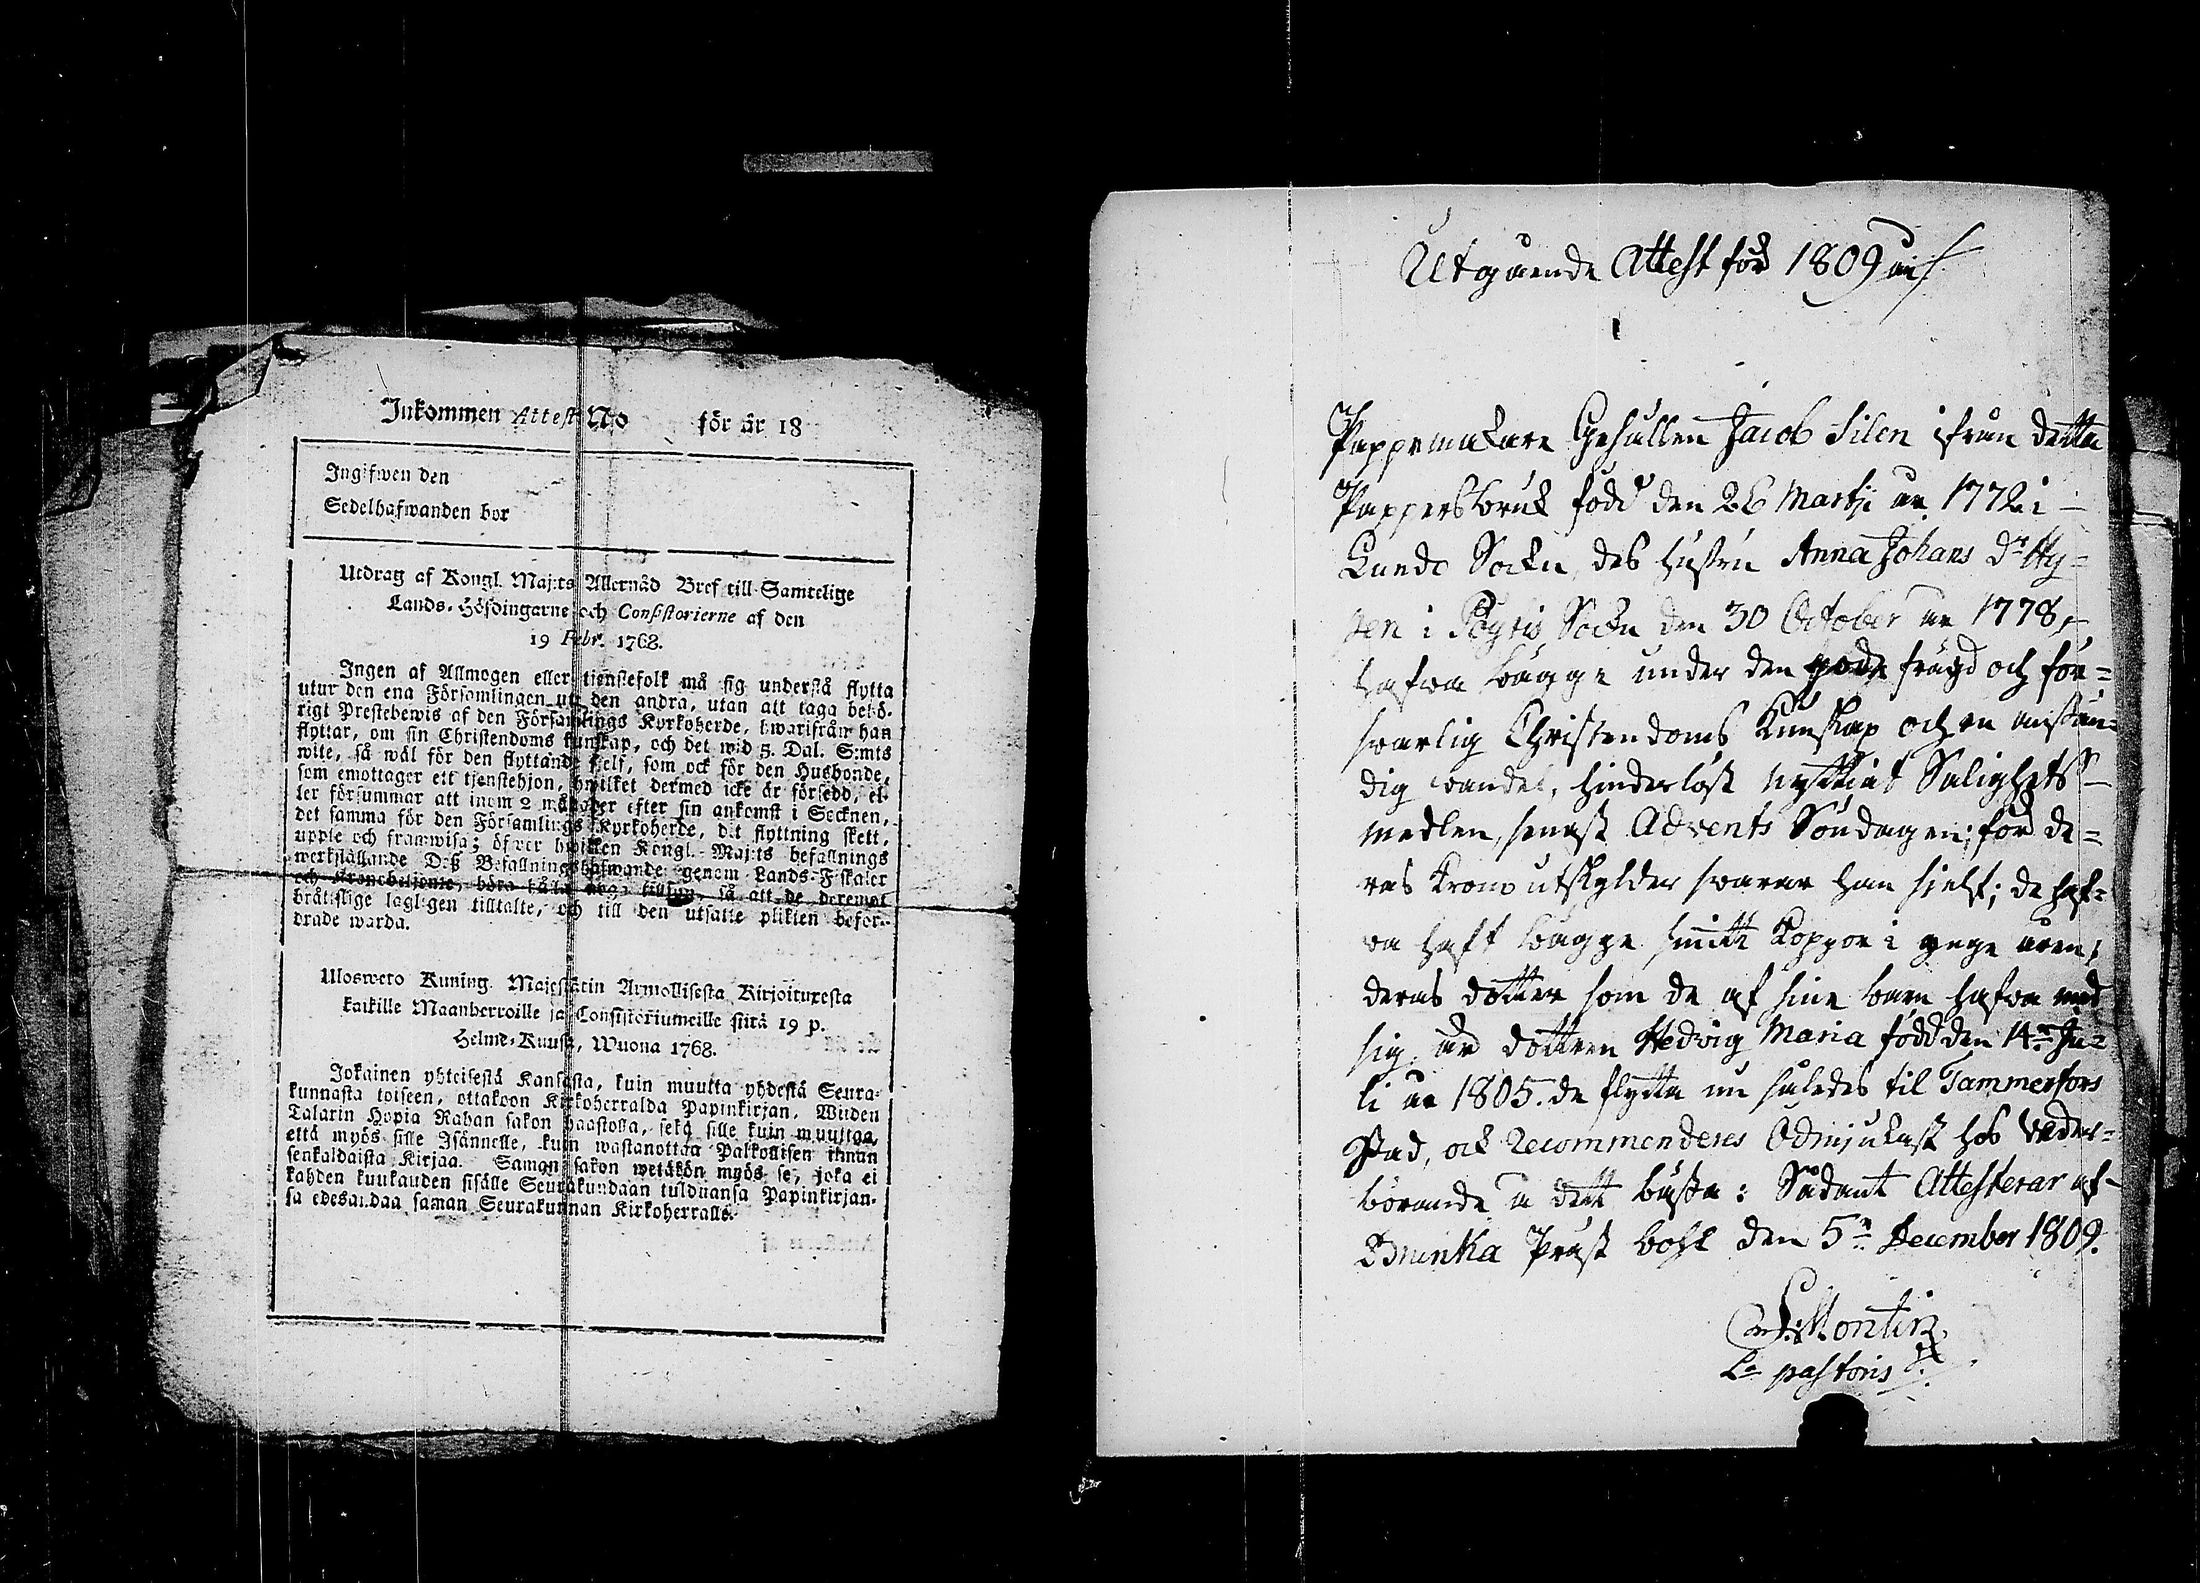 Inkommen Attest No för år 18
Ingifwen den
Sedelhafwanden bor
Utdrag af Kongl. Maj:ts Allernåd Bref till Samtelige
Lands-Höfdingarne och Consistorierne af den
19 Febr. 1768.
Ingen af Allmogen eller tienstefolk må sig understå flytta
utur den ena Församlingen uti den andra, utan att taga behö-
rigt Prestebewis af den Församlings Kyrkoherde, hwarifrån han
flyttar, om sin Christendoms kunskap, och det wid 5. Dal. S:mts
wite, så wäl för den flyttande sjelf, som ock för den Husbonde,
som emottager ett tjenstehjon, hwilket dermed icke är försedd, el-
ler försummar att inom 2 månader efter sin ankomst i Socknen,
det samma för den Församlings Kyrkoherde, dit flyttning skett,
uppte och framwisa; öfwer hwilken Kongl. Maj:ts befallnings
werkställande Deß Befallningshafwande genom Lands-Fiskaler
och Kronobetjente, böra hålla noga tillsyn, så att de deremot
bråttslige lagligen tilltalte, och till den utsatte plikten befor-
drade warda.
Ulosweto Kuning. Majestetin Armollisesta Kirjoituxesta
kaikille Maanherroille ja Consistoriumeille siitä 19 p.
Helme-Kuusa, Wuona 1768.
Jokainen yhteisestä Kansasta, kuin muutta yhdestä Seura-
kunnasta toiseen, ottakoon Kirkoherralda Papinkirjan, Wiiden
Talarin Hopia Rahan sakon haastolla, sekä sille kuin muuttaa,
että myös sille Isännelle, kuin wastanottaa Palkollisen ilman
senkaldaista Kirjaa. Saman sakon wetäkön myös se, joka ei
kahden kuukauden sisälle Seurakundaan tulduansa Papinkirjan-
sa edesandaa saman Seurakunnan Kirkoherralle.
Utgående Attest för 1809
1
Pappermakare Gesällen Jacob Silen ifrån detta
Pappersbruk född den 26 Martji år 1772 i
Lundo Sockn, des hustru Anna Johans Dr Ny-
sen i Pöytis Sockn den 30 October år 1778,
hafva bägge under den goda frägd och för-
svarlig Christendoms Kunskap och en anstän-
dig vandel, hinderlöst nyttiat Salighets
medlen, senast Advents Söndagen; för de-
ras Krono utskylder svarar han sjelf; de haf-
va haft bägge smitt Koppor i unge åren;
deras dotter som de af sine barn hafva med
sig, är dottren Hedvig Maria född den 14de Ju-
li år 1805. de flytta nu således til Tammerfors
Stad, och Recommenderes Ödmjukast hos Veder-
börande å det bästa: Sådant Attesterar af
Brunka Präst bohl den 5te December 1809.
Montin
Ls pastoris